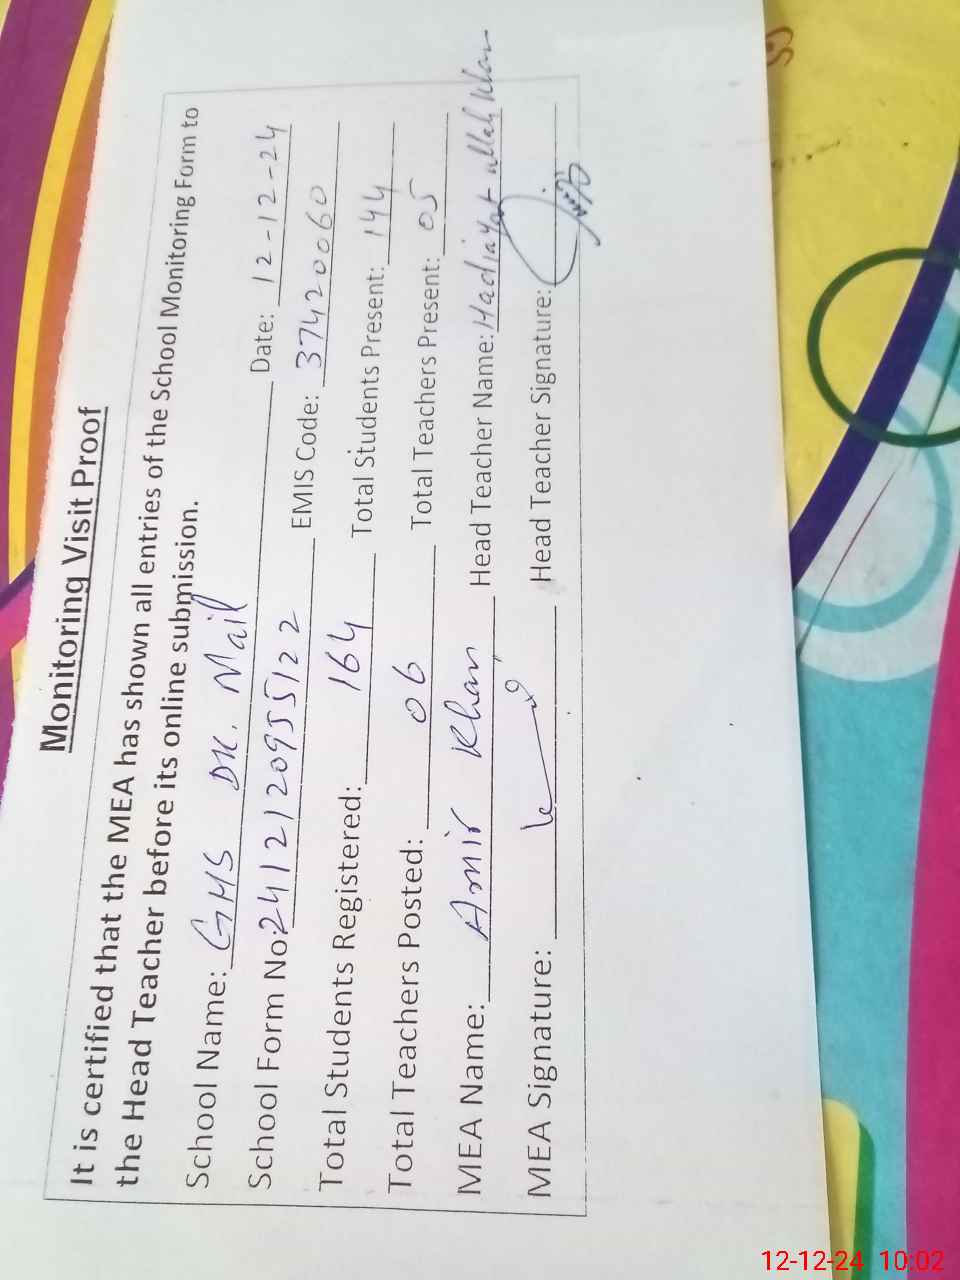 Monitoring Visit Proof
It is certified that the MEA has shown all entries of the School Monitoring Form to
the Head Teacher before its online submission.
School Name: GHS DK. Mail Date: 12-12-24
School Form No: 2412120955122 EMIS Code: 37420060
Total Students Registered: 164 Total Students Present: 144
Total Teachers Posted: 06 Total Teachers Present: 05
MEA Name: Amir Khan Head Teacher Name: Hadiayat ullah khan
MEA Signature: Head Teacher Signature:
12-12-24 10:02